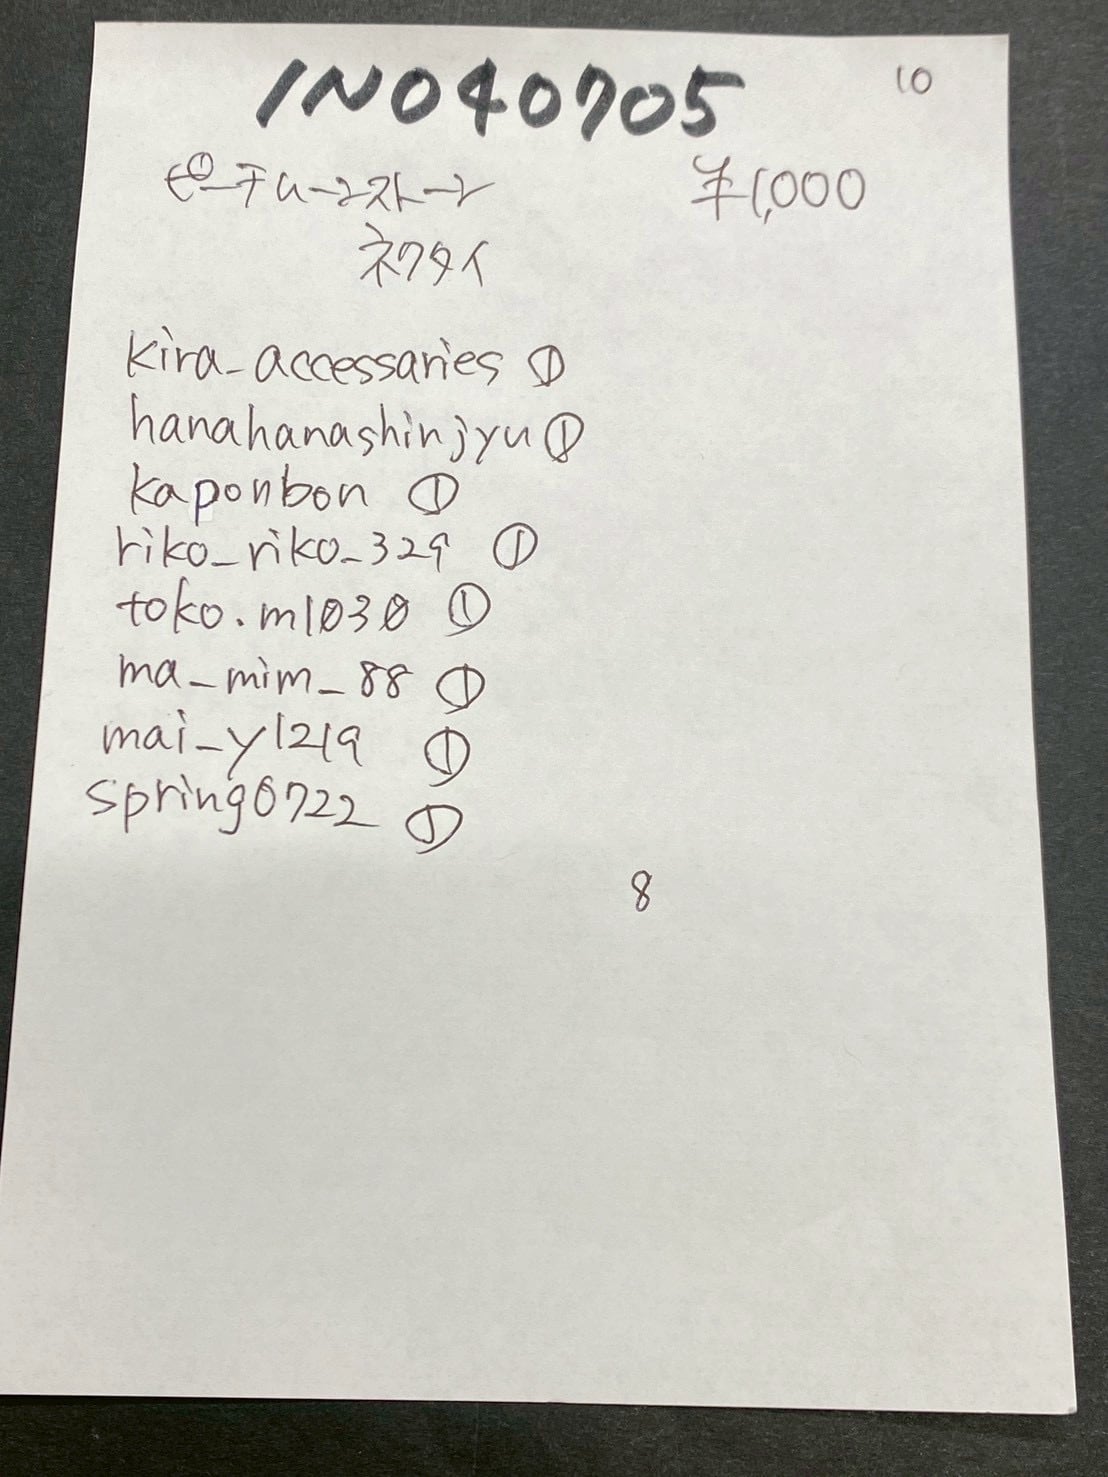 INO40705
10
ピーチムーンストーン ¥1,000
ネクタイ
kira_accessaries ①
hanahanashinjyu ①
kaponbon ①
riko_riko_329 ①
toko.m1030 ①
ma_mim_88 ①
mai_y1219 ①
spring0722 ①
8